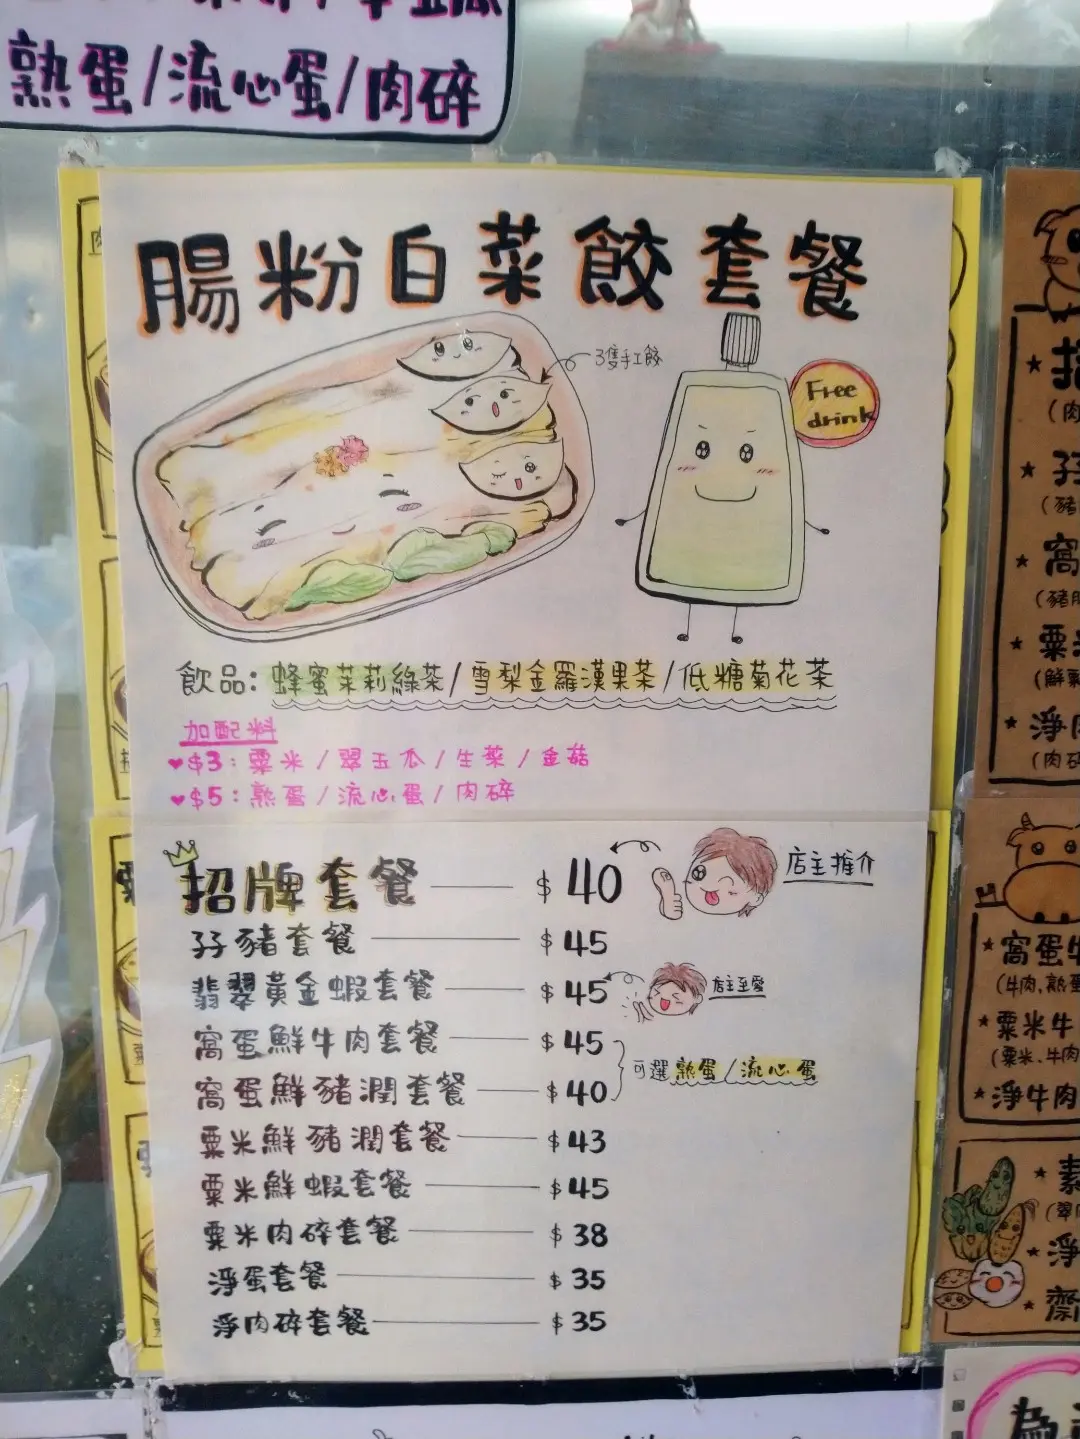 熟蛋/流心蛋/肉碎
腸粉白菜餃套餐
3隻手工餃
Free
drink
飲品: 蜂蜜茉莉綠茶/雪梨金羅漢果茶/低糖菊花茶
加配料
♥$3: 粟米/翠玉瓜/生菜/金菇
♥$5: 熟蛋/流心蛋/肉碎
招牌套餐 $40 店主推介
孖豬套餐 $45
翡翠黃金蝦套餐 $45 店主至愛
窩蛋鮮牛肉套餐 $45
可選熟蛋/流心蛋
窩蛋鮮豬潤套餐 $40
粟米鮮豬潤套餐 $43
粟米鮮蝦套餐 $45
粟米肉碎套餐 $38
淨蛋套餐 $35
淨肉碎套餐 $35
★招
(肉
★孖
(豬
★窩
★粟米
★淨肉
(肉碎
★窩蛋牛
(牛肉,熟蛋
★粟米牛
(粟米,牛肉
★淨牛肉
★素
★淨
★齋